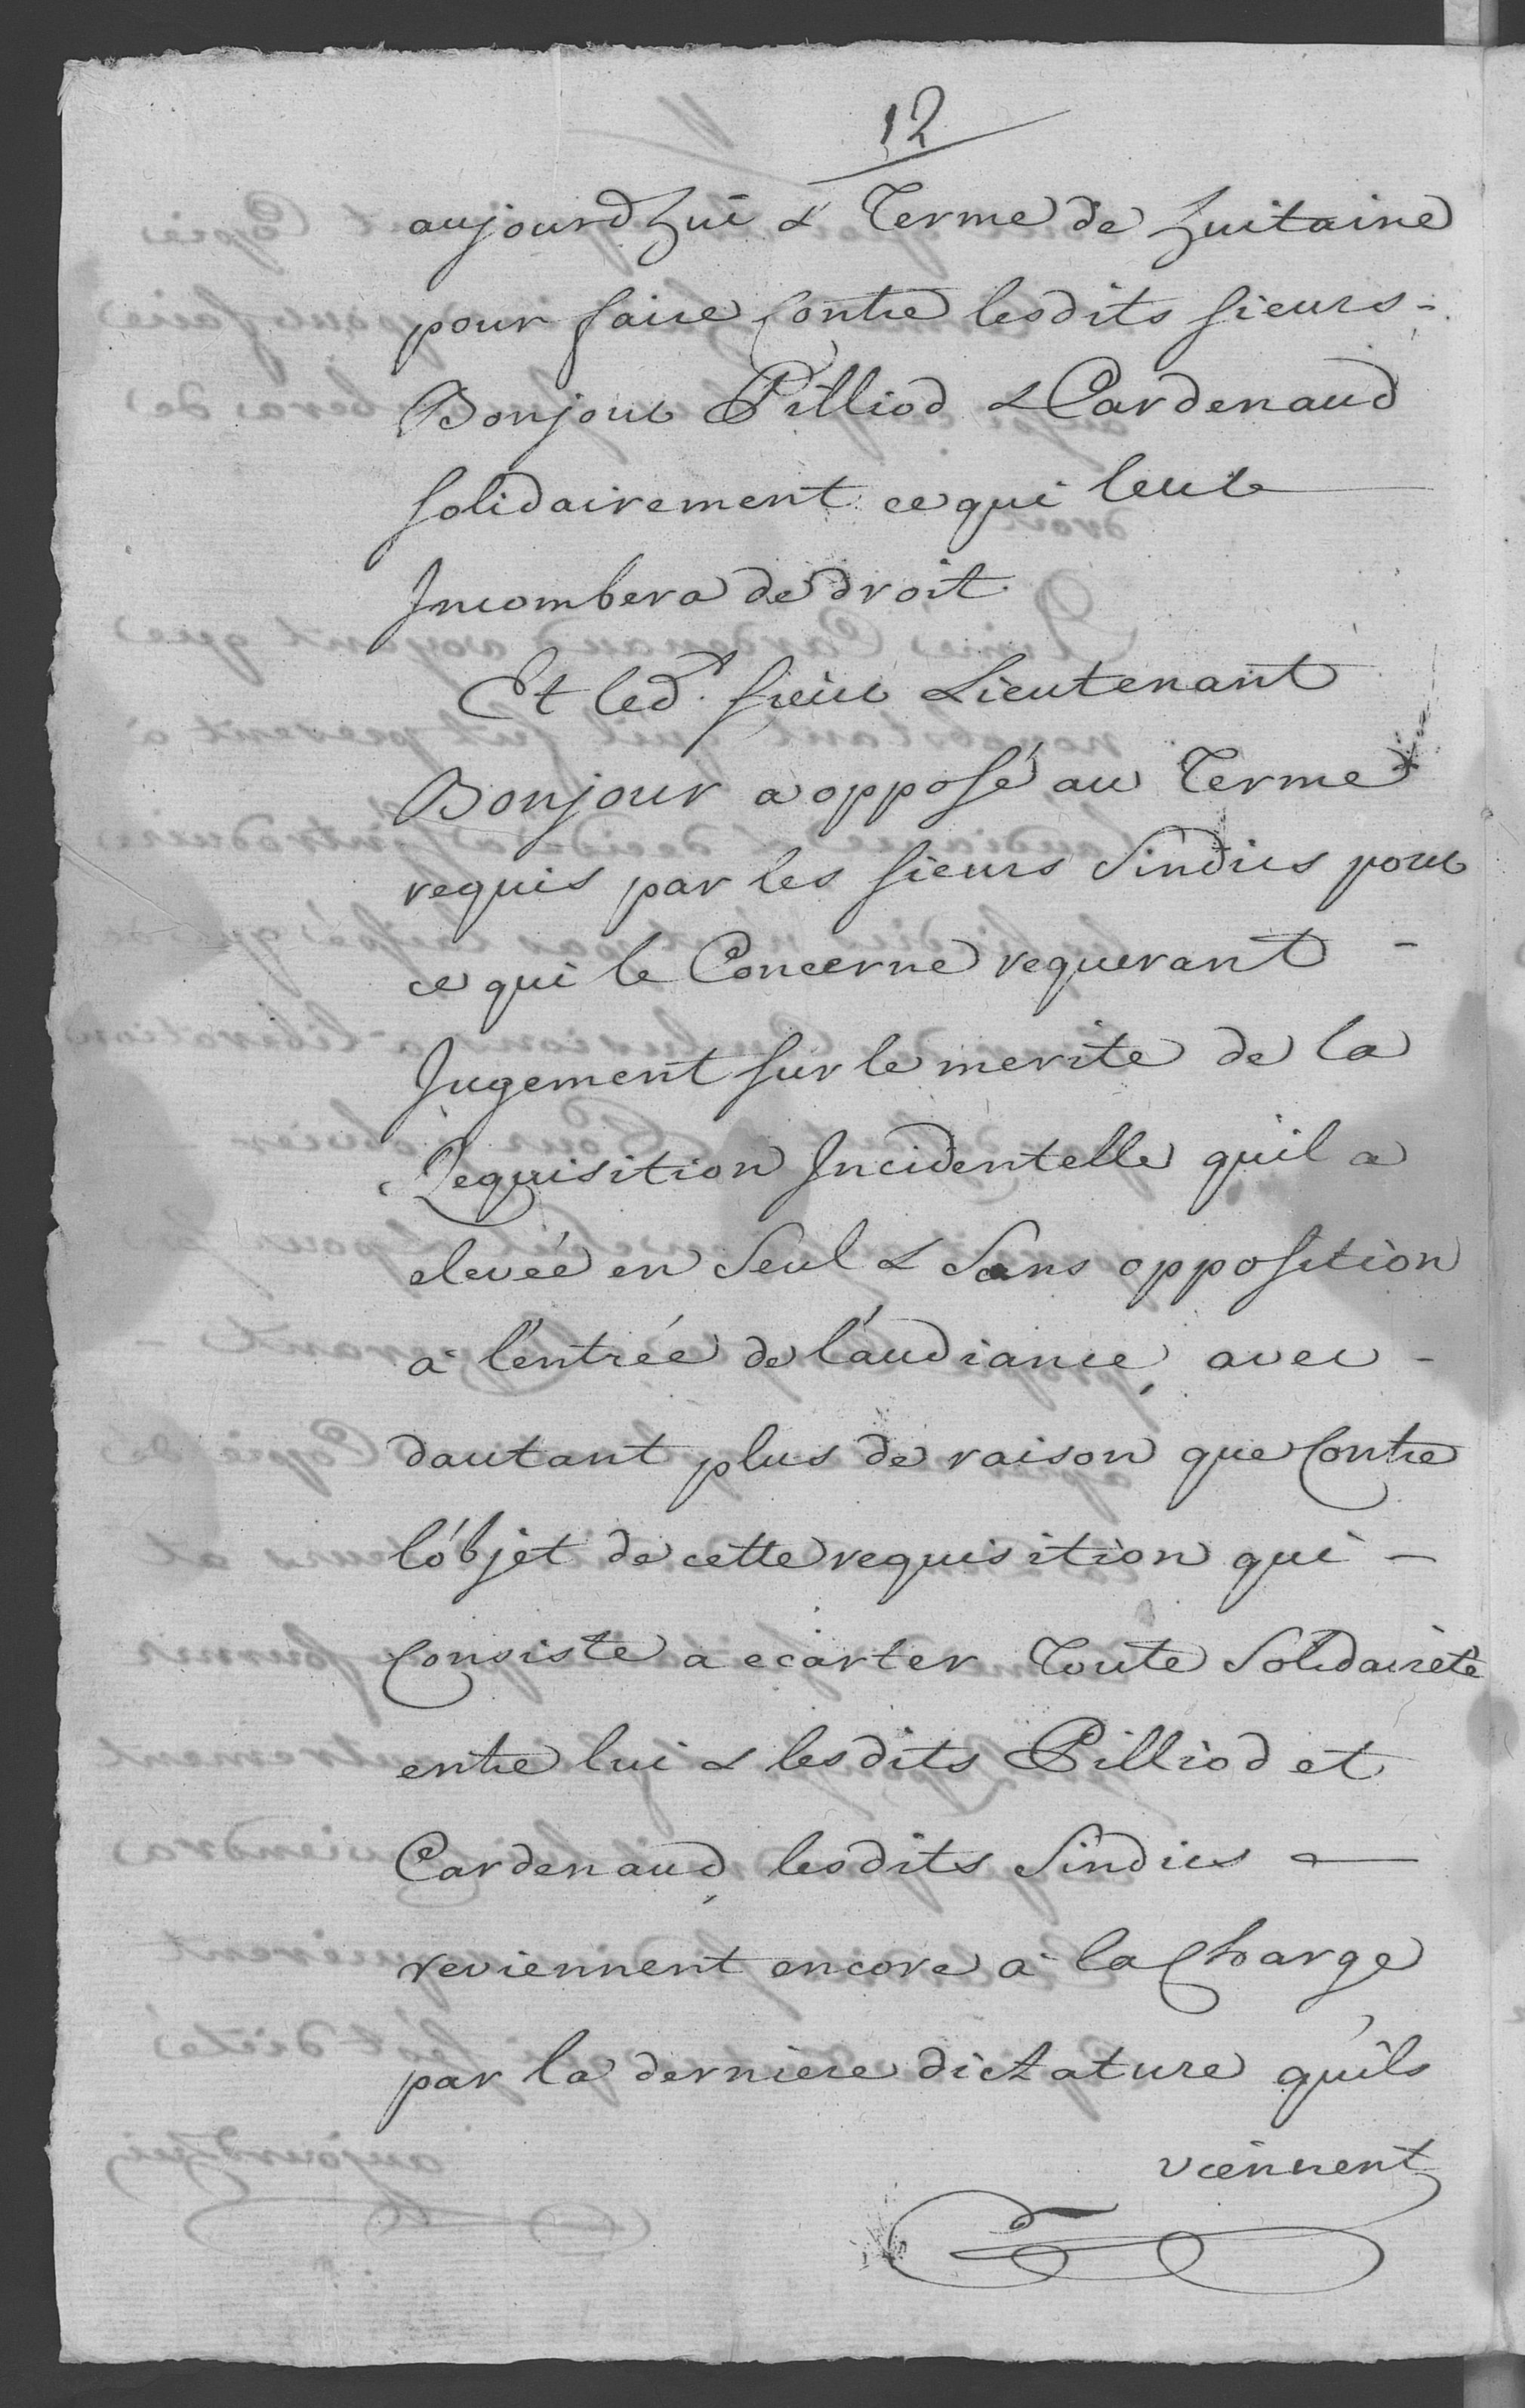 12
aujourdhui & Terme de huitaine
pour faire Contre lesdits sieurs -
Bonjour Pilliod & Cardenaud
solidairement ce qui leur
Incombera de droit.
Et led.t sieur Lieutenant
Bonjour a opposé au Terme
requis par les sieurs Sindics pour
ce qui le Concerne requerant -
Jugement sur le merite de la
Requisition Incidentelle quil a
elevée en Seul & Sans opposition
à l'entrée de l'audiance, avec -
dautant plus de raison que Contre
l'objet de cette requisition qui -
Consiste a ecarter Toute Solidaireté
entre lui & lesdits Pilliod et
Cardenaud, lesdits Sindics -
reviennent encore à la Charge
par la derniere dictature qu'ils
viennent